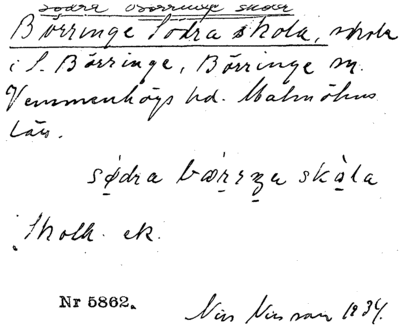 Södra Börringe skola
Börringe Södra skola, skola
i S. Börringe, Börringe sn.
Vemmenhögs hd. Malmöhus
län.
sødra bœrrŋa skåla
Skolh. ek.
Nr 5862.
Nils Nilsson 1934.